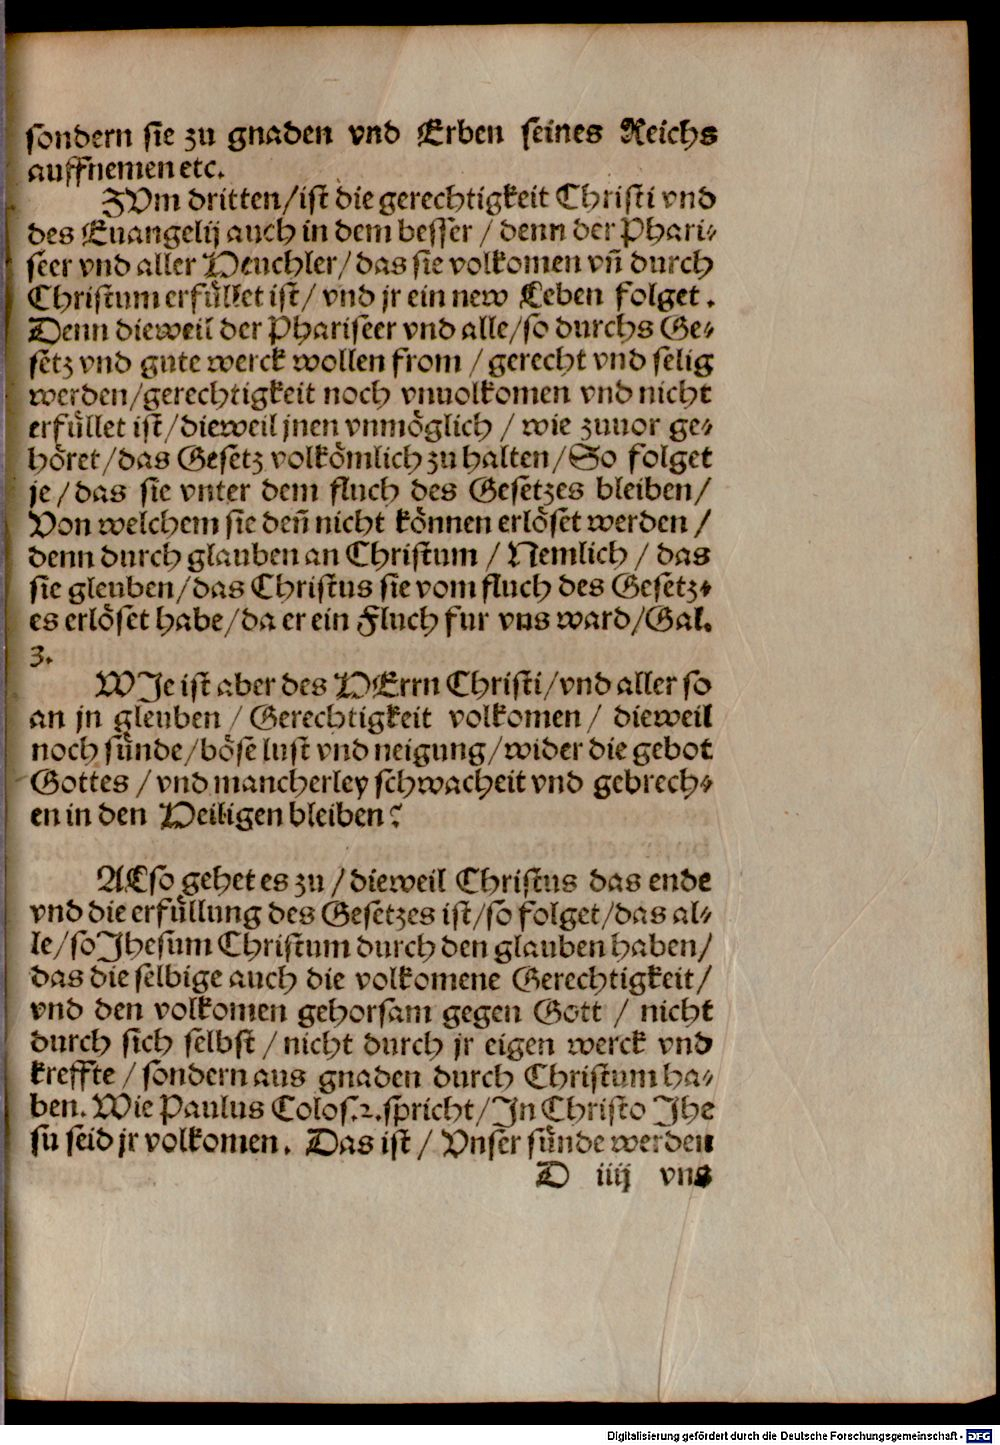 sondern sie zu gnaden vnd Erben seines Reichs
auffnemen etc.
ZVm dritten/ist die gerechtigkeit Christi vnd
des Euangelij auch in dem besser / denn der Phari⸗
seer vnd aller Heuchler/das sie volkomen vn̄ durch
Christum erfüllet ist/ vnd jr ein new Leben folget.
Denn dieweil der Phariseer vnd alle/so durchs Ge⸗
setz vnd gute werck wollen from / gerecht vnd selig
werden/gerechtigkeit noch vnuolkomen vnd nicht
erfüllet ist/dieweil jnen vnmöglich / wie zuuor ge⸗
höret/das Gesetz volkömlich zu halten/So folget
je/das sie vnter dem fluch des Gesetzes bleiben/
Von welchem sie den̄ nicht können erlöset werden/
denn durch glauben an Christum / Nemlich / das
sie gleuben/das Christus sie vom fluch des Gesetz⸗
es erlöset habe/da er ein Fluch fur vns ward/Gal.
3.
WIe ist aber des HErrn Christi/vnd aller so
an jn gleuben / Gerechtigkeit volkomen / dieweil
noch sünde/böse lust vnd neigung/wider die gebot
Gottes / vnd mancherley schwacheit vnd gebrech⸗
en in den Heiligen bleiben?
ALso gehet es zu / dieweil Christus das ende
vnd die erfüllung des Gesetzes ist/so folget/das al⸗
le/so Jhesum Christum durch den glauben haben/
das die selbige auch die volkomene Gerechtigkeit/
vnd den volkomen gehorsam gegen Gott / nicht
durch sich selbst / nicht durch jr eigen werck vnd
kreffte / sondern aus gnaden durch Christum ha⸗
ben. Wie Paulus Colos.2.spricht/In Christo Jhe
su seid jr volkomen. Das ist / Vnser sünde werden
D iiij vns
Digitalisierung gefördert durch die Deutsche Forschungsgemeinschaft - DFG